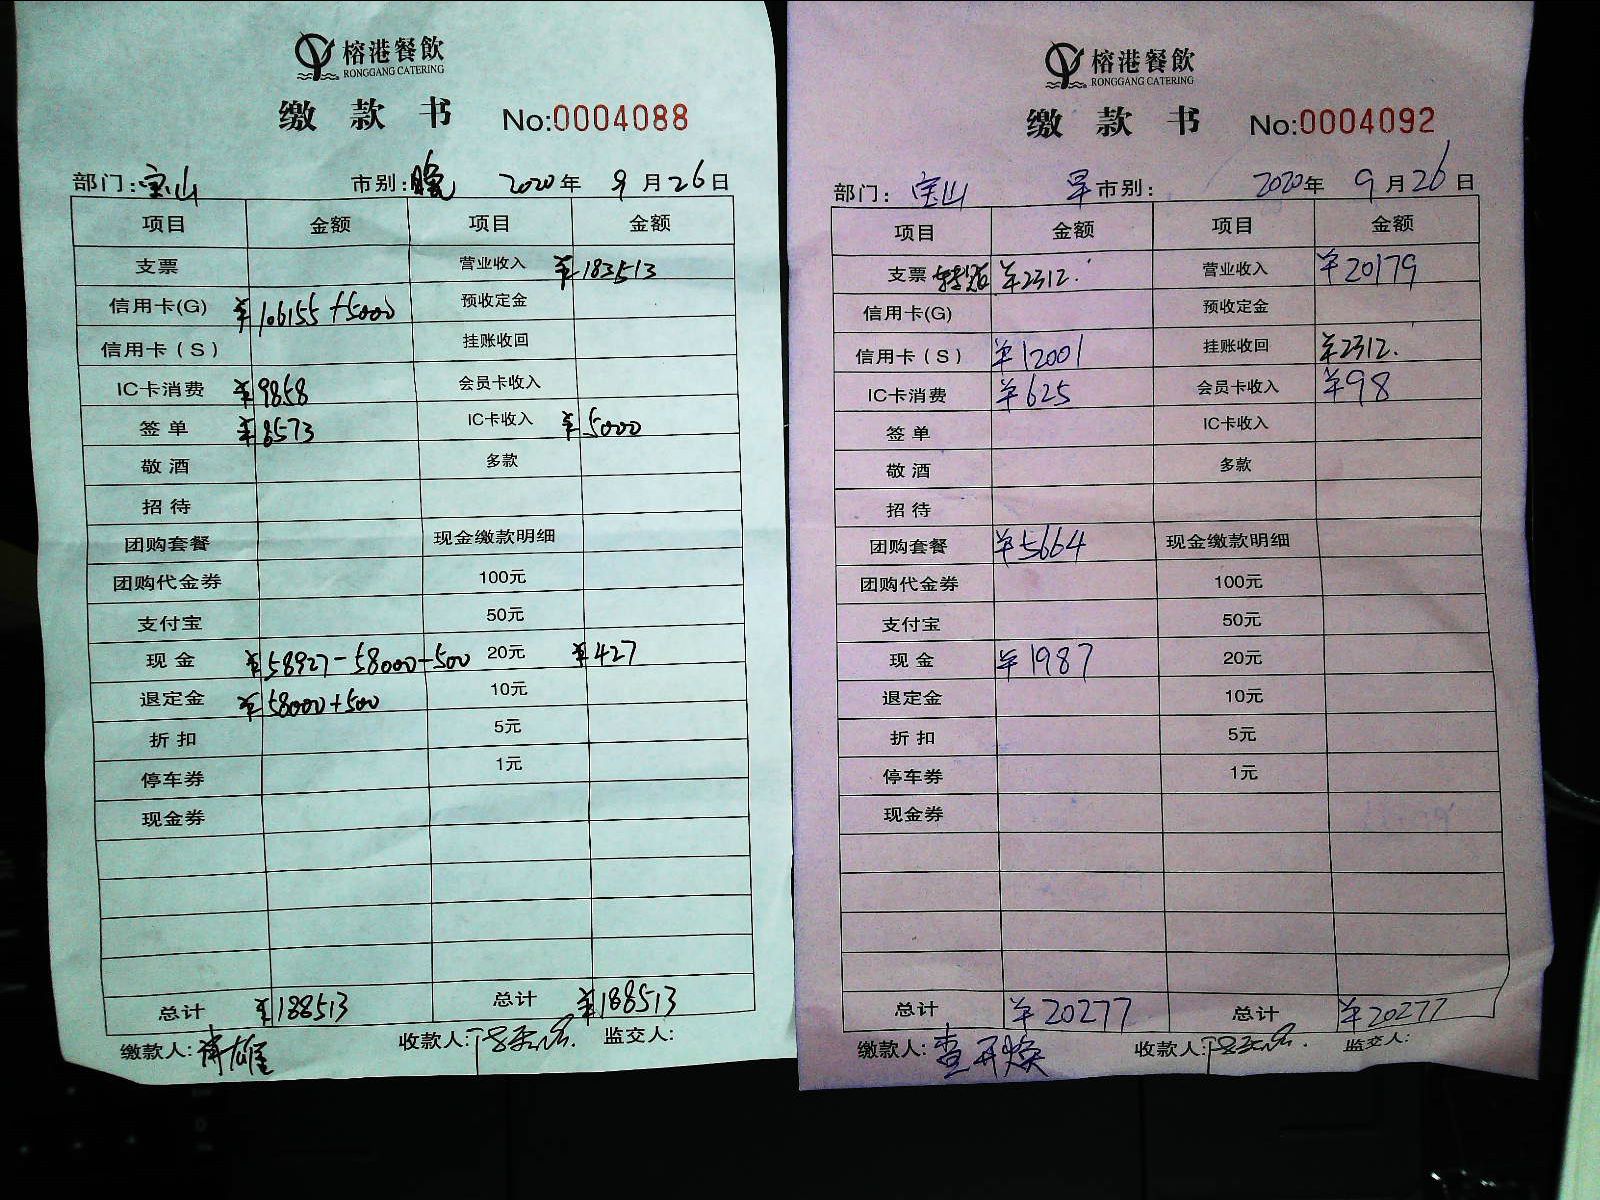 榕港餐飲
RONGGANG CATERING
缴款书 No:0004088
部门:宝山 市别:晚 2020年 9月26日
项目 金额 项目 金额
支票 营业收入 ¥183513
信用卡(G) ¥106155+5000 预收定金
信用卡(S) 挂账收回
IC卡消费 ¥9858 会员卡收入
签单 ¥8573 IC卡收入 ¥5000
敬酒 多款
招待
团购套餐 现金缴款明细
团购代金券 100元
支付宝 50元
现金 ¥58927-58000-500 20元 ¥427
退定金 ¥58000+500 10元
折扣 5元
停车券 1元
现金券
总计 ¥188513 总计 ¥188513
缴款人: 收款人: 监交人:
榕港餐飲
RONGGANG CATERING
缴款书 No:0004092
部门:宝山 早市别: 2020年 9月26日
项目 金额 项目 金额
支票 ¥2312. 营业收入 ¥20179
信用卡(G) 预收定金
信用卡(S) ¥12001 挂账收回 ¥2312.
IC卡消费 ¥625 会员卡收入 ¥98
签单 IC卡收入
敬酒 多款
招待
团购套餐 ¥5664 现金缴款明细
团购代金券 100元
支付宝 50元
现金 ¥1987 20元
退定金 10元
折扣 5元
停车券 1元
现金券
总计 ¥20277 总计 ¥20277
缴款人: 收款人: 监交人: